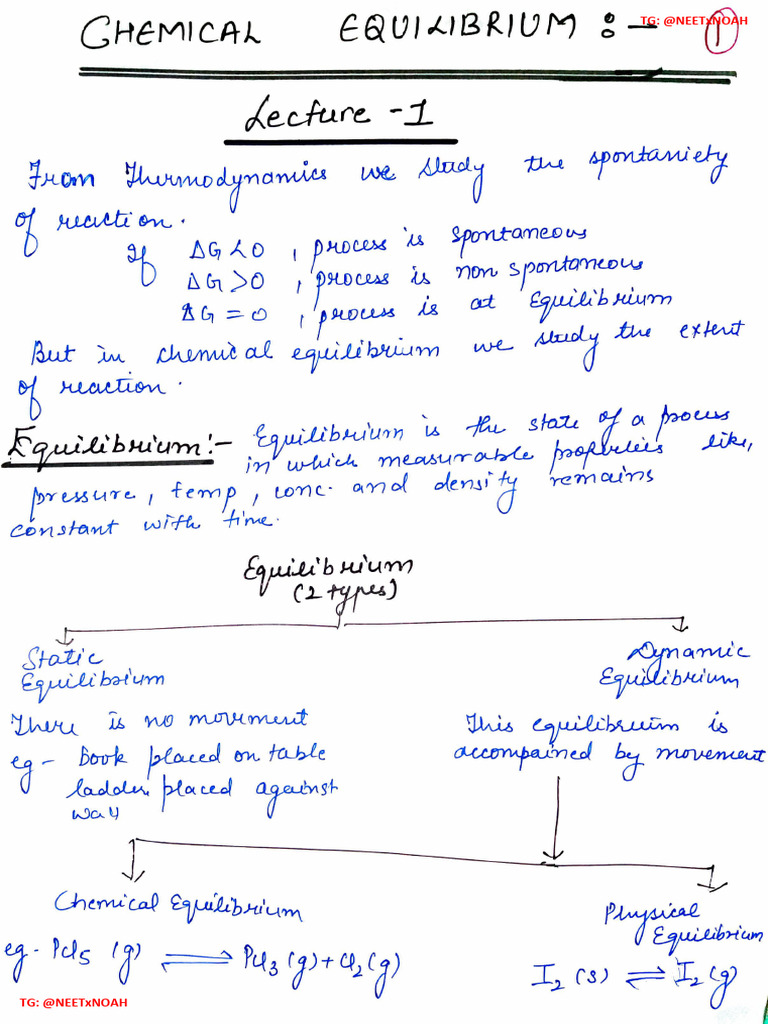 TG: @NEETxNOAH
CHEMICAL EQUILIBRIUM :- 1
Lecture -1
From Thermodynamics we study the spontaniety
of reaction.
If ΔG<0 , process is spontaneous
ΔG>0 , process is non spontaneous
ΔG=0 , process is at Equilibrium
But in chemical equilibrium we study the extent
of reaction.
Equilibrium:- Equilibrium is the state of a process
in which measurable properties like,
pressure, temp, conc. and density remains
constant with time.
Equilibrium
(2 types)
Static
Equilibrium
There is no movement
eg - Book placed on table
ladder placed against
wall
Dynamic
Equilibrium
This equilibrium is
accompained by movement
Chemical Equilibrium
eg. PCl5 (g) ⇌ PCl3 (g) + Cl2 (g)
Physical
Equilibrium
I2 (s) ⇌ I2 (g)
TG: @NEETxNOAH